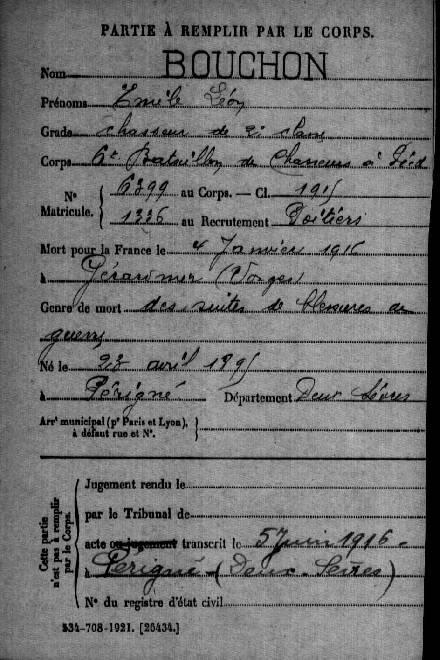 PARTIE À REMPLIR PAR LE CORPS.
Nom BOUCHON
Prénoms Emile Léon
Grade chasseur de 2e classe
Corps 6e Bataillon de Chasseurs à Pied
N° Matricule. { 6399 au Corps. — Cl. 1915
1336 au Recrutement Poitiers
Mort pour la France le 4 Janvier 1916
à Gérardmer (Vosges)
Genre de mort des suites de blessures de
guerre
Né le 28 avril 1895
à Périgné Département Deux Sèvres
Arrt municipal (pr Paris et Lyon),
à défaut rue et N°. }
Cette partie n'est pas à remplir par le Corps. {
Jugement rendu le
par le Tribunal de
acte ou jugement transcrit le 5 Juin 1916
à Perigné (Deux-Sèvres)
N° du registre d'état civil
534-708-1921. [26434.]